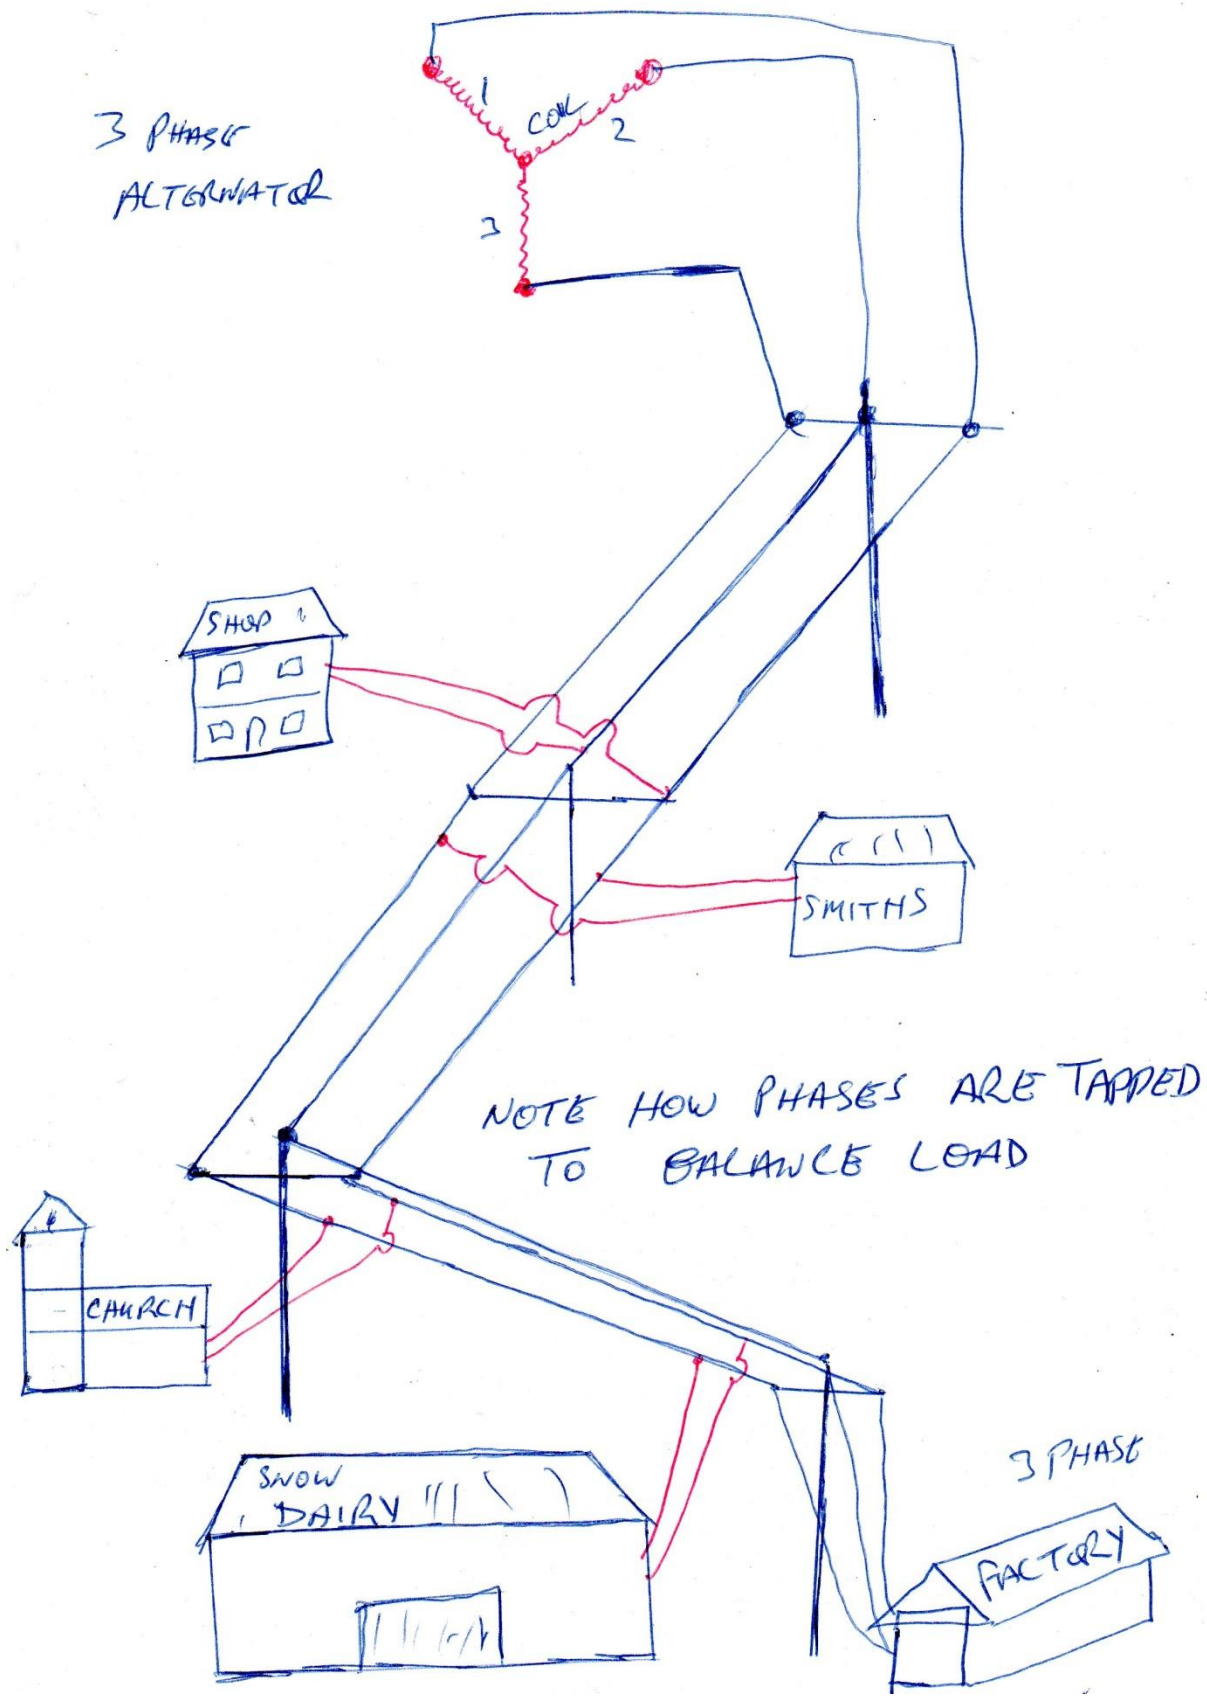 3 PHASE
ALTERNATOR
1
COIL
2
3
SHOP
SMITHS
NOTE HOW PHASES ARE TAPPED
TO BALANCE LOAD
CHURCH
SNOW
DAIRY
3 PHASE
FACTORY